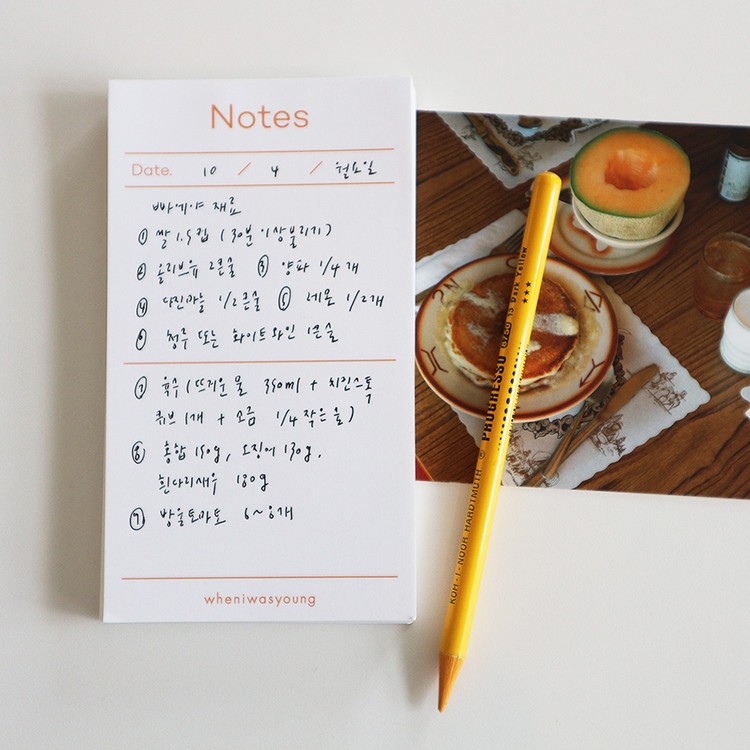 Notes
Date. 10 / 4 / 월요일
빠에야 재료
① 쌀 1.5컵 (30분 이상 불리기)
② 올리브유 2큰술 ③ 양파 1/4개
④ 다진마늘 1/2큰술 ⑤ 레몬 1/2개
⑥ 청주 또는 화이트와인 1큰술
⑦ 육수 (뜨거운 물 350ml + 치킨스톡
큐브 1개 + 소금 1/4 작은술)
⑧ 홍합 150g, 오징어 130g.
흰다리새우 180g
⑨ 방울토마토 6~8개
wheniwasyoung
KOH-I-NOOR HARDTMUTH ® PROGRESSO 8750 13 Dark Yellow ★★★